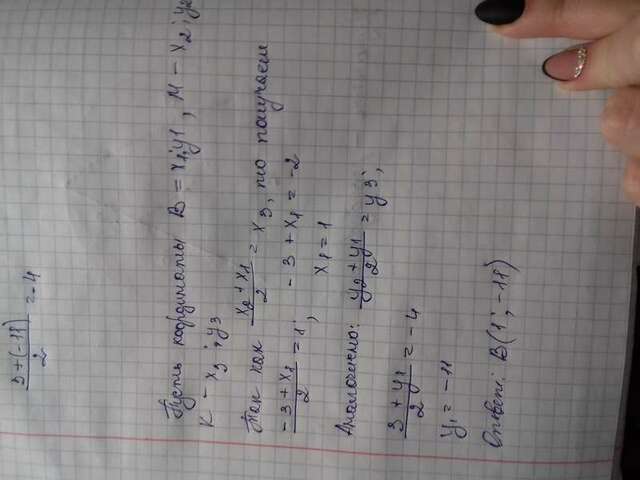 3 + (-11) / 2 = -4
Пусть координаты B = x1; y1, M - x2; y2
K - x3; y3
Так как x2 + x1 / 2 = x3, то получаем
-3 + x1 / 2 = 1; -3 + x1 = -2
x1 = 1
Аналогично: y2 + y1 / 2 = y3;
3 + y1 / 2 = -4
y1 = -11
Ответ: B (1; -11)